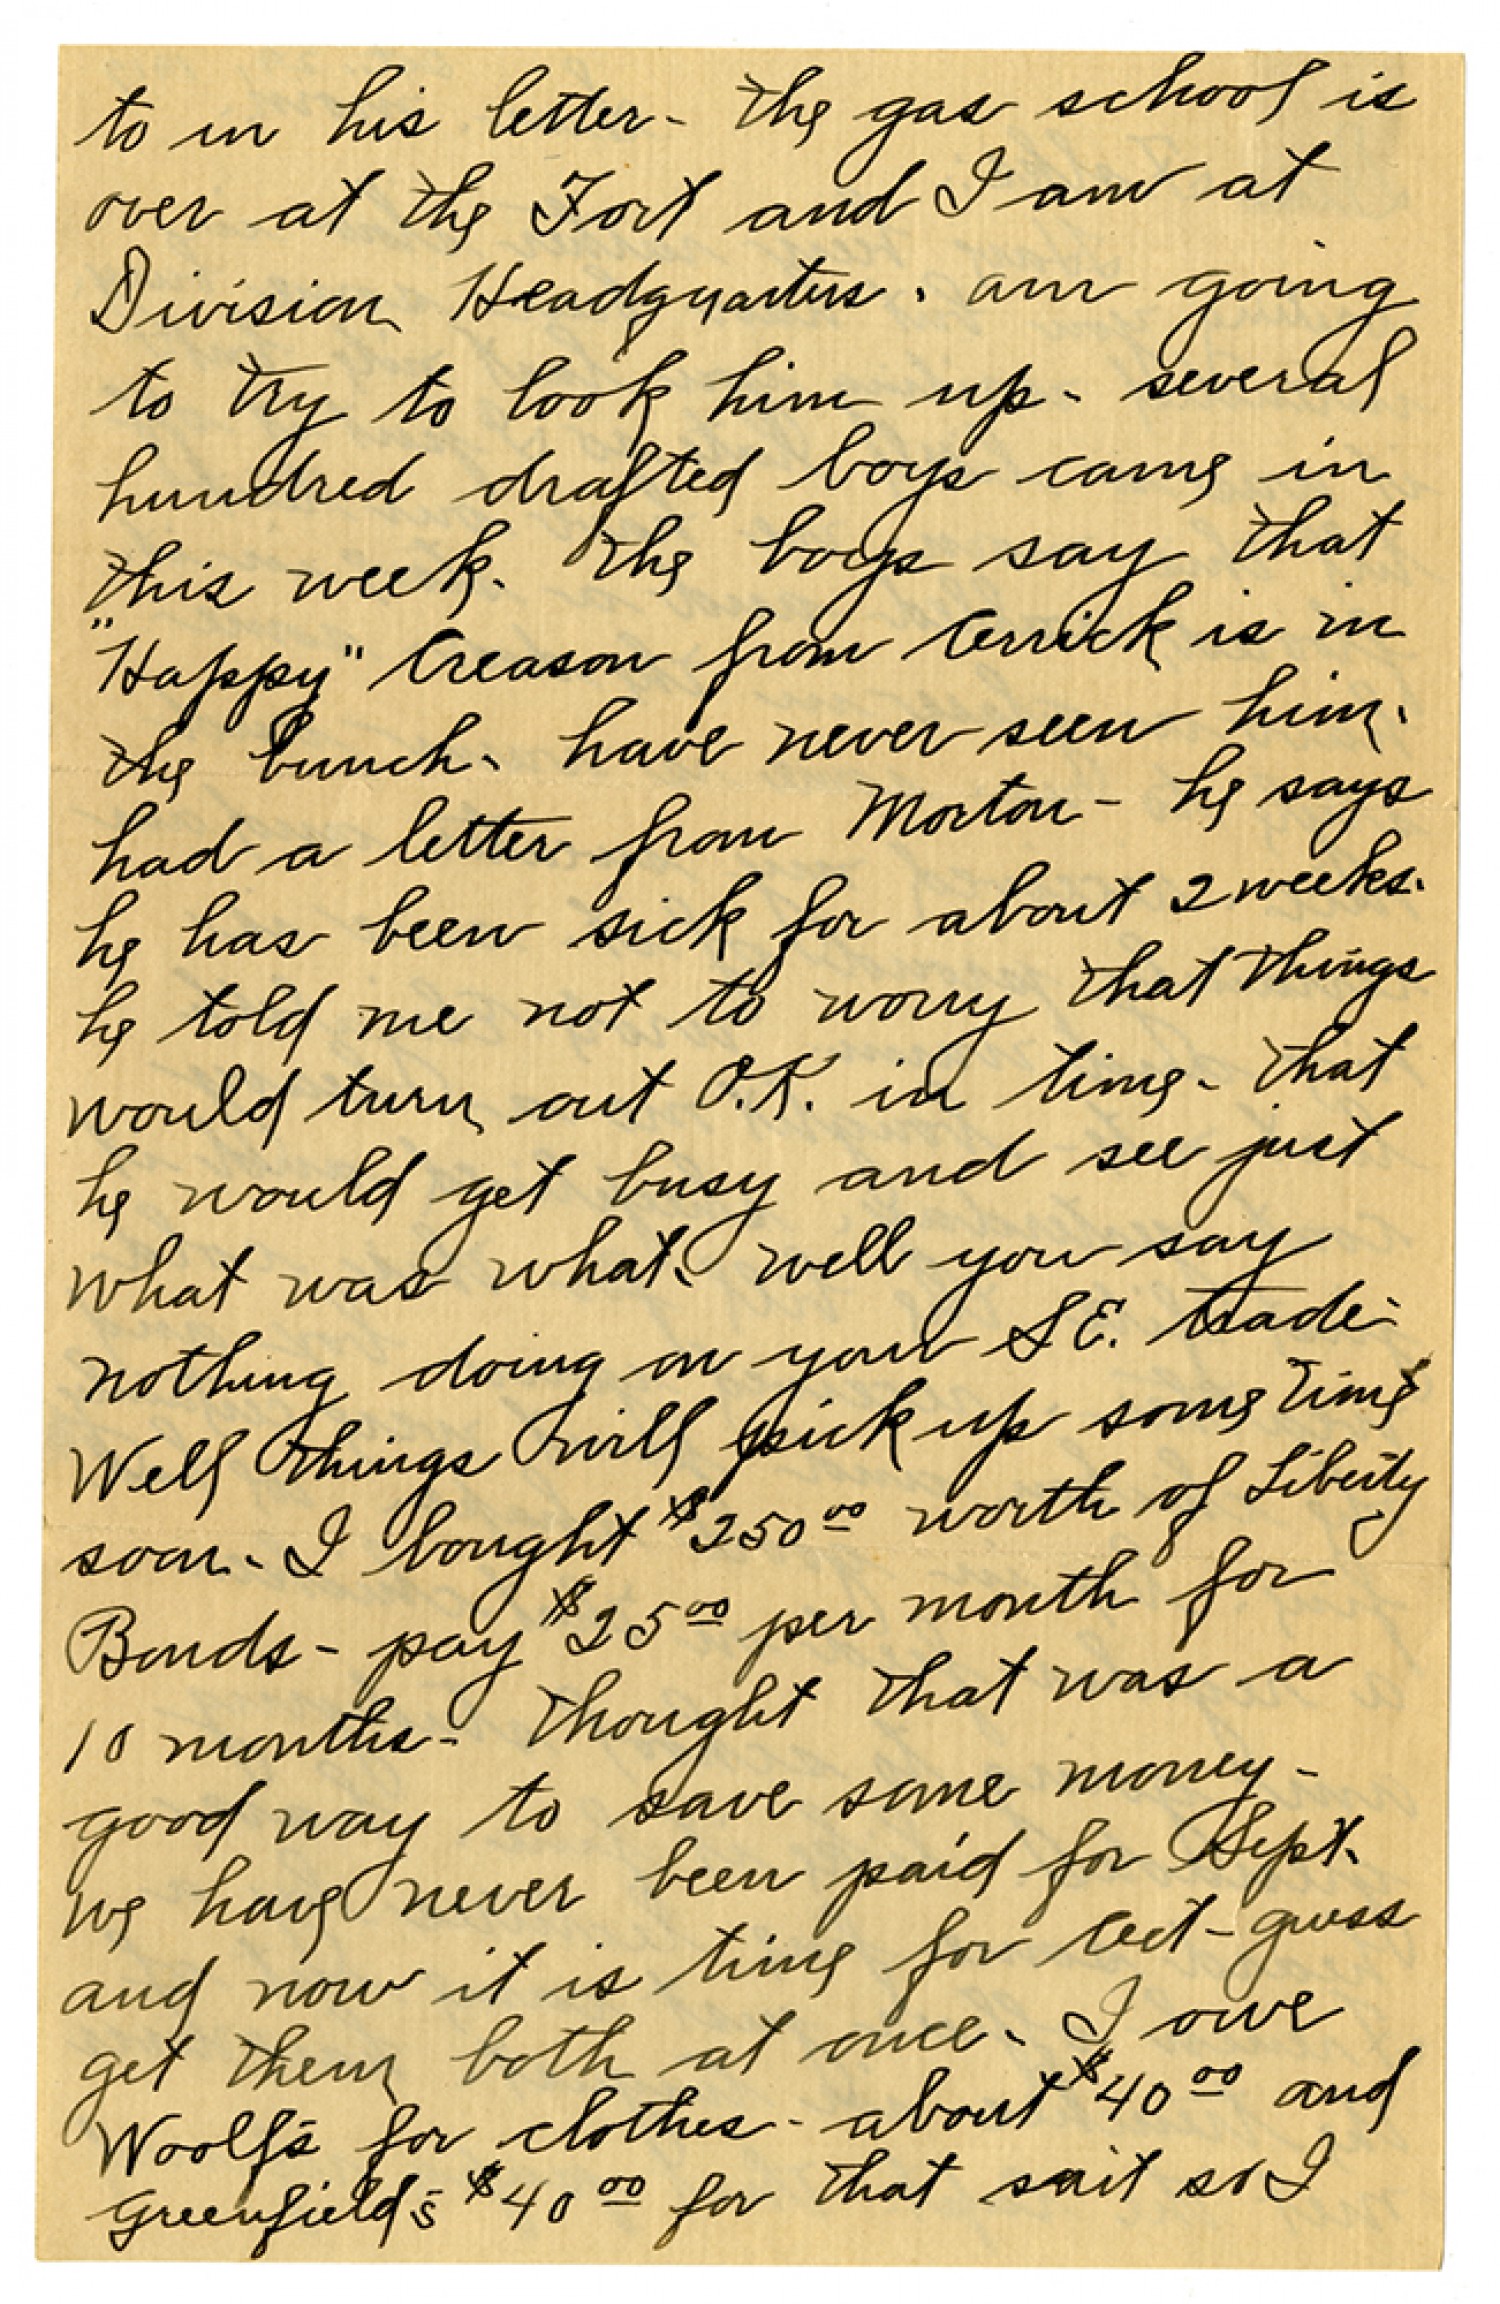 to in his letter - the gas school is
over at the Fort and I am at
Division Headquarters. am going
to try to look him up. several
hundred drafted boys came in
this week. the boys say that
"Happy" Creason from Orrick is in
the bunch. have never seen him.
had a letter from Morton - he says
he has been sick for about 2 weeks.
he told me not to worry that things
would turn out O.K. in time - that
he would get busy and see just
what was what. well you say
nothing doing on your S.E. trade -
Well things will pick up some time
soon - I bought $250.00 worth of Liberty
Bonds - pay $25.00 per month for
10 months - thought that was a
good way to save some money -
we have never been paid for Sept.
and now it is time for Oct - guess
get them both at once. I owe
Woolf's for clothes - about $40.00 and
Greenfield's $40.00 for that suit so I